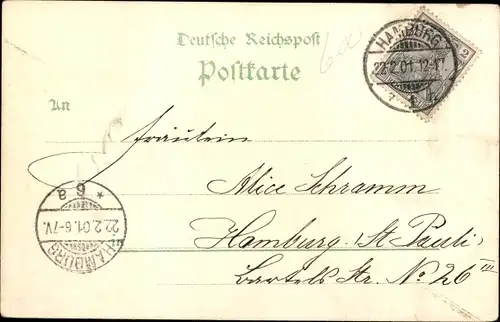 Deutsche Reichspost
Postkarte
6a
HAMBURG
22.2.01.12-1
2
An
Fräulein
Alice Schramm
Hamburg. St. Pauli
Bartels Str. No 26 III
* 6 a
22.2.01.6-7V.
HAMBURG